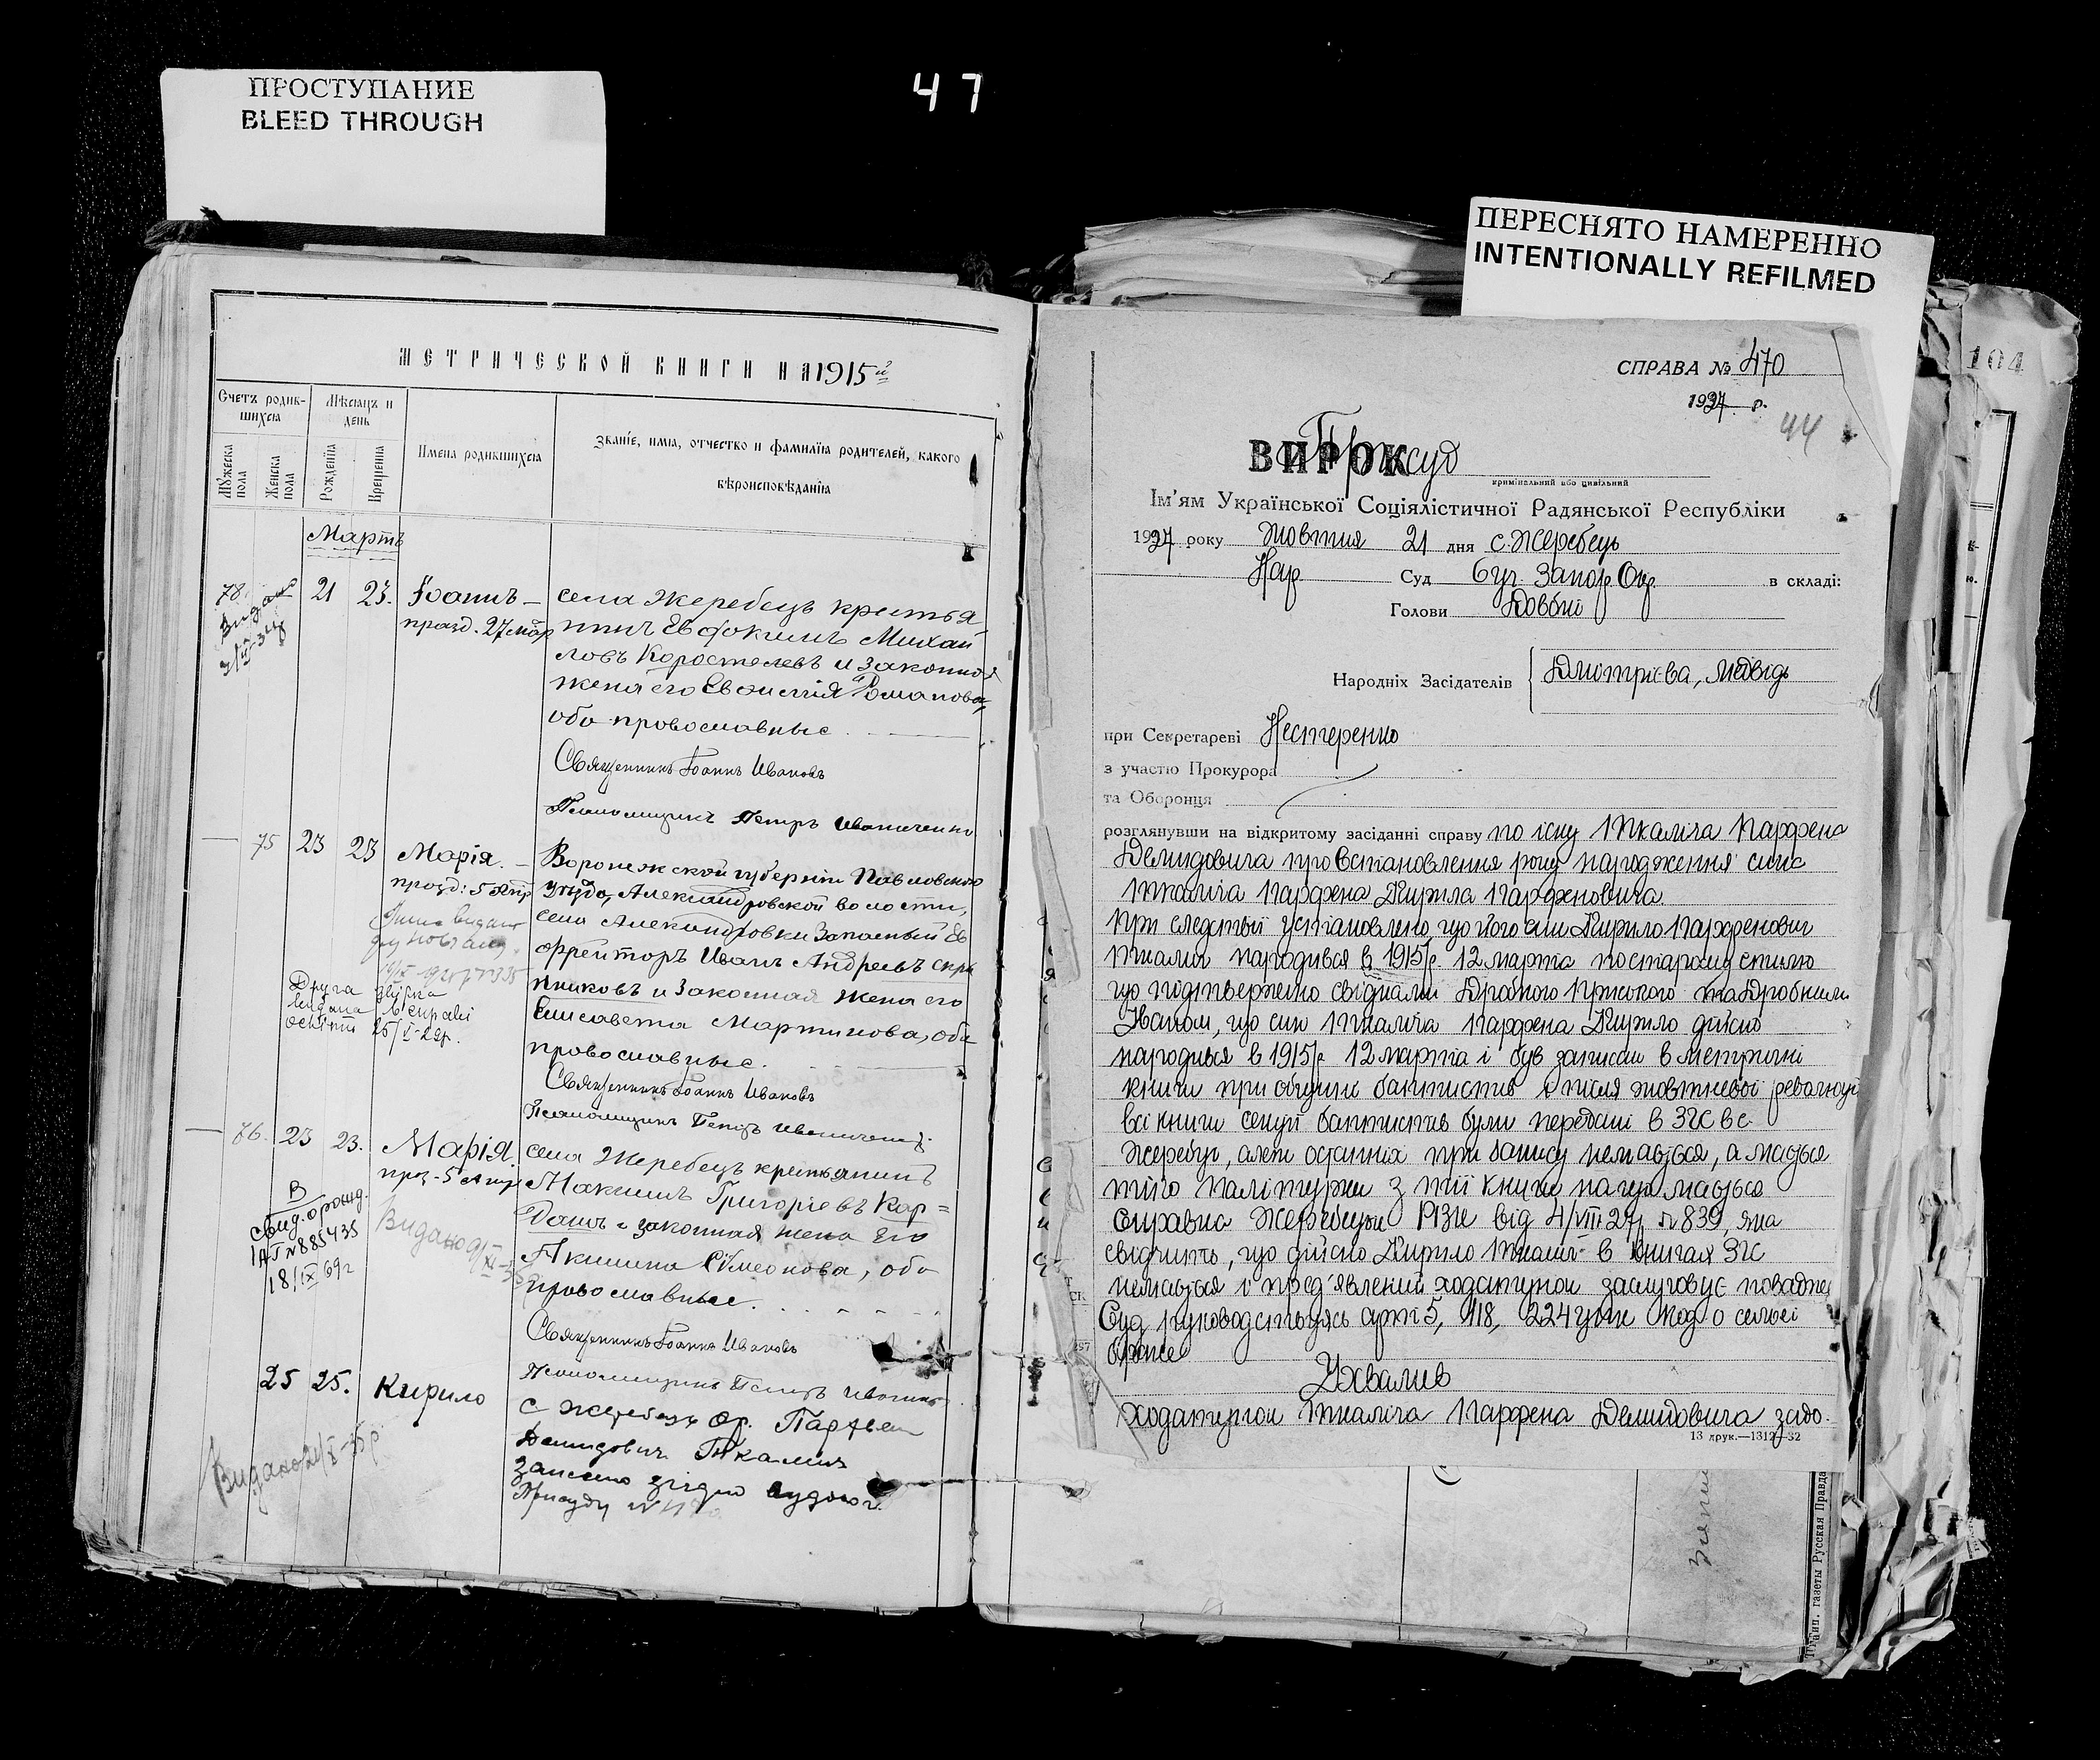 ПРОСТУПАНИЕ
BLEED THROUGH
47
ПЕРЕСНЯТО НАМЕРЕННО
INTENTIONALLY REFILMED
104
МЕТРИЧЕСКОЙ КНИГИ НА 1915й
Счетъ родив-
шихся
Мѣсяцъ и
день
Мужеска
пола
Женска
пола
Рожденія
Крещенія
Имена родившихся
Званіе, имя, отчество и фамилія родителей, какого
вѣроисповѣданія
Мартъ
78.
21 23. Іоаннъ
празд. 27 мар
села Жеребецъ крестья
нинъ Евфокимъ Михай
ловъ Коростелевъ и законная
жена его Евфимія Романова,
оба православные
Священникъ Іоаннъ Ивановъ
Псаломщикъ Петръ Иваниченко
75 23 23 Марія.
празд: 5 Апр
Воронежской губерніи Павловскаго
уѣзда, Александровской волости,
села Александровки Запасный Еф
фрейторъ Иванъ Андреевъ Скры
нниковъ и законная жена его
Елисавета Мартинова, оба
православные.
Друга
видана
25/I-29р.
Священникъ Іоаннъ Ивановъ
Псаломщикъ Петръ
76. 23 23. Марія.
праз-5 Апр
села Жеребецъ крестьянинъ
Максимъ Григорьевъ Кар=
дашъ и законная жена его
Акилина Симеонова, оба
православные.
В
свид. о рожд.
IАП №885435
18/IX 69г
Видано
Священникъ Іоаннъ Ивановъ
Псаломщикъ Петръ
25 25. Кирило
с Жеребець гр. Парфен
Демидович Ткалич
записано згідно судового
Присуду №470
Видано 21/X-35р
СПРАВА № 470
1927 р.
44
ВИРОК
Присуд
кримінальний або цивільний
Ім'ям Української Соціялістичної Радянської Республіки
1927 року Жовтня 21 дня с. Жеребець
Нар. Суд 6 уч. Запор. Окр. в складі:
Голови Довбні
Народніх Засідателів Дмитрієва, Медвідь
при Секретареві Нестеренко
з участю Прокурора
та Оборонця
розглянувши на відкритому засіданні справу по іску Ткаліча Парфена
Демидовича про встановлення року народження сина
Ткаліча Парфена Кирила Парфеновича.
При следствії установлено, що його син Кирило Парфенович
Ткалич народився в 1915 р. 12 марта по старому стилю
що подтвержено свідками Дробного та Дробним
Іваном, що син Ткаліча Парфена Кирило дійсно
народився в 1915 р 12 марта і був записан в метричні
книги при общині баптистів і після жовтневої революції
всі книги секції баптистів були передані в ЗАГС в с.
Жеребець, але в останніх при запису немається, а мається
тіко палітурки з тії книги на що мається
справка Жеребецької РВК від 4/VIII 27р №839, яка
свідчить, що дійсно Кирило Ткаліч в книгах ЗАГС
немається і пред'явлений ходатирої заслуговує поваджен
Суд руководствуясь арт. 5, 118, 224 ЦПК Код о сем'ї
браке
Ухвалив
Ткаліча Парфена Демидовича задо-
13 друк.—1312—32
Тип. газеты Русская Правда